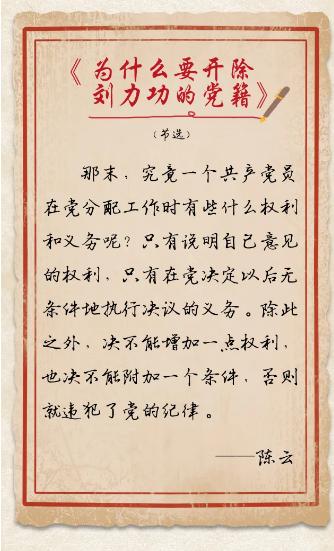 《为什么要开除
刘力功的党籍》
（节选）
那末，究竟一个共产党员
在党分配工作时有些什么权利
和义务呢？只有说明自己意见
的权利，只有在党决定以后无
条件地执行决议的义务。除此
之外，决不能增加一点权利，
也决不能附加一个条件，否则
就违犯了党的纪律。
——陈云